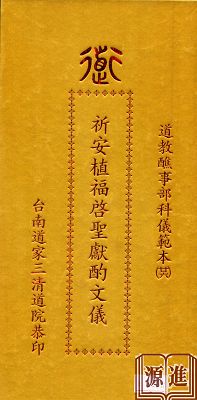 道教醮事部科儀範本(共)
祈安植福啓聖獻酌文儀
台南道家三清道院恭印
源進